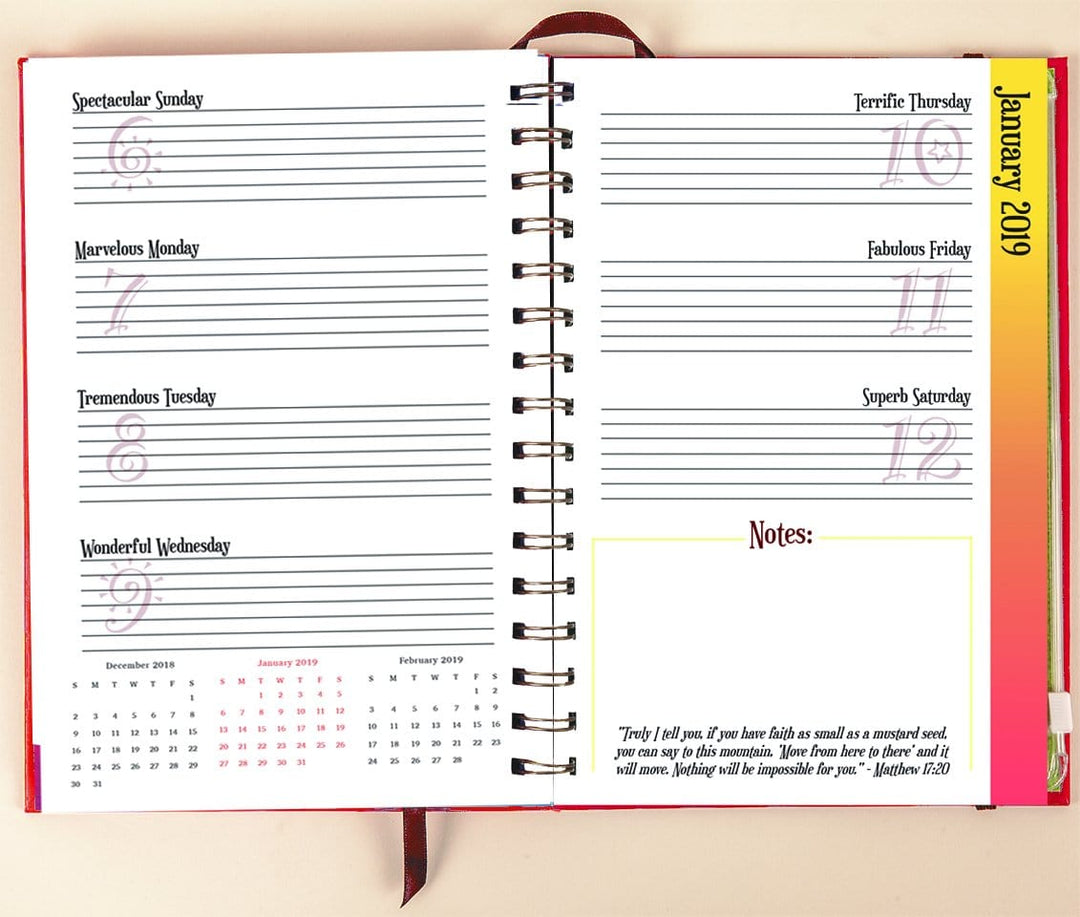 Spectacular Sunday
6
Marvelous Monday
7
Tremendous Tuesday
8
Wonderful Wednesday
9
December 2018
S M T W T F S
1
2 3 4 5 6 7 8
9 10 11 12 13 14 15
16 17 18 19 20 21 22
23 24 25 26 27 28 29
30 31
January 2019
S M T W T F S
1 2 3 4 5
6 7 8 9 10 11 12
13 14 15 16 17 18 19
20 21 22 23 24 25 26
27 28 29 30 31
February 2019
S M T W T F S
1 2
3 4 5 6 7 8 9
10 11 12 13 14 15 16
17 18 19 20 21 22 23
24 25 26 27 28
Terrific Thursday
10
Fabulous Friday
11
Superb Saturday
12
Notes:
"Truly I tell you, if you have faith as small as a mustard seed,
you can say to this mountain, 'Move from here to there' and it
will move. Nothing will be impossible for you." - Matthew 17:20
January 2019